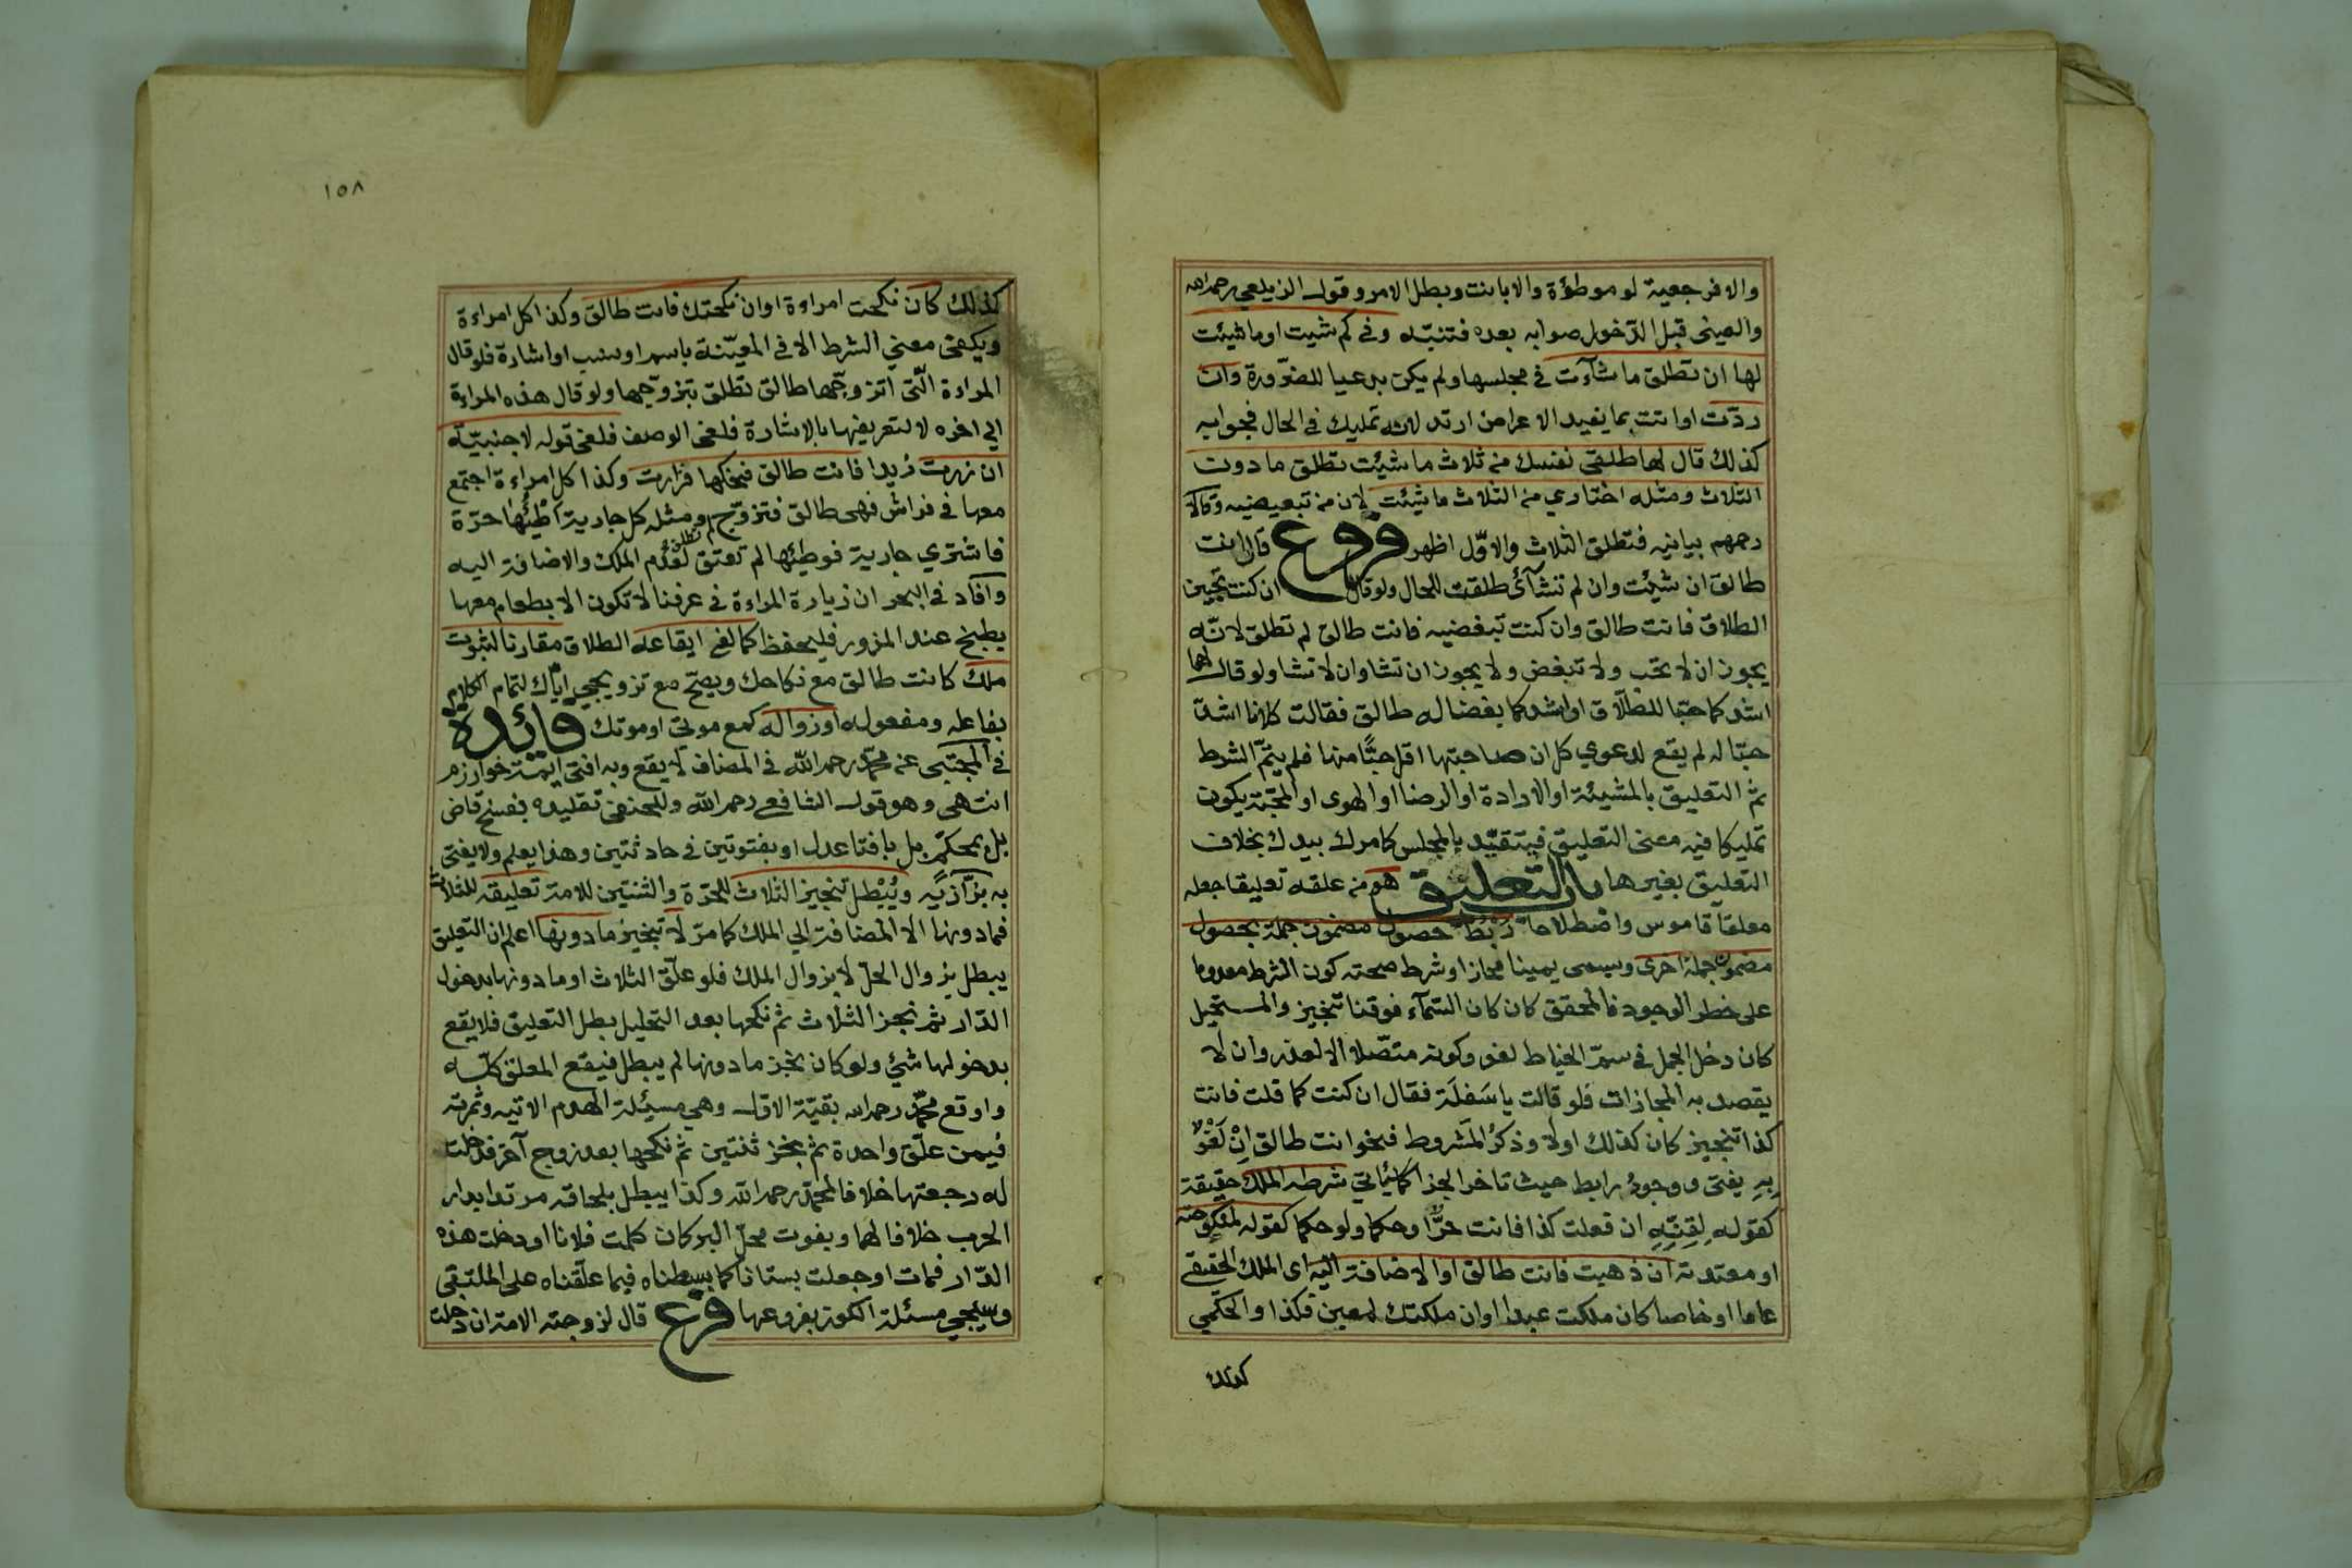 والا فرجعية لو موطؤة والا بانت وبطل الامر وقول الزيلعي رحمه الله
والعيني قبل الدّخول صوابه بعده فتنبّه وفي كم شيت او ما شيئت
لها ان تطلق ما شآءت في مجلسها ولم يكن بدعيا للضّرورة وان
ردّت او اتت بما يفيد الاعراض ارتد لانه تمليك في الحال فجوابه
كذلك قال لها طلقي نفسك من ثلاث ما شيئت تطلق ما دون
الثلاث ومثله اختاري من الثلاث ما شيئت لان من تبعيضيه وقالا
رحمهم بيانيه فتطلق الثلاث والاوّل اظهر فروع قال انت
طالق ان شيئت وان لم تشآئ طلقت للحال ولو قال ان كنت تحبين
الطلاق فانت طالق وان كنت تبغضيه فانت طالق لم تطلق لانّه
يجوز ان لا تحب ولا تبغض ولا يجوز ان تشا وان لا تشا ولو قال لهما
اشد كما حبّا للطلاق او اشد كما بغضا له طالق فقالت كلانا اشدّ
حبّا له لم يقع لدعوي كل ان صاحبتها اقل حبًّا منها فلم يتمّ الشرط
ثم التعليق بالمشيئة او الارادة او الرضا او الهوى او المحبّة يكون
تمليكا فيه معنى التعليق فيتقيّد بالمجلس كامرك بيدك بخلاف
التعليق بغيرها باب التعليق هو من علقه تعليقا جعله
معلقا قاموس واصطلاحا ربط حصول مضمون جملة بحصول
مضمون جملة اخرى ويسمى يمينا مجازا وشرط صحته كون الشرط معدوما
على خطر الوجود فالمحقق كان كان السّمآء فوقنا تنجيز والمستحيل
كان دخل الجمل في سمّ الخياط لغو وكونه متّصلا الا لعذر وان لا
يقصد به المجازات فلو قالت يا سَفلَة فقال ان كنت كما قلت فانت
كذا تنجيز كان كذلك اولا وذكرُ المشروط فنحو انت طالق اِنْ لَغْوٌ
بِهِ يفتى ووجودُ رابط حيث تاخر الجزا كما ياتي شرطه الملك حقيقة
كقوله لِقِنِّهِ ان فعلت كذا فانت حرٌّ او حكما ولو حكما كقوله لمنكوحته
او معتدته ان ذهبت فانت طالق او الاضافة اليه اى الملك الحقيقي
عاما او خاصا كان ملكت عبدا او ان ملكتك لمعين فكذا والحكمي
كذلك
١٥٨
كذلك كان نكحت امراءة او ان نكحتك فانت طالق وكذا كل امراءة
ويكفى معني الشرط الا في المعيّنة باسم او نسب او اشارة فلو قال
المراءة الّتى اتزوجّها طالق تطلق بتزوجّها ولو قال هذه المراءة
الي اخره لا لتعريفها بالاشارة فلغى الوصف فلغى قوله لاجنبيّة
ان زرت زيدا فانت طالق فنكحها فزارت وكذا كل امراءة اجتمع
معها في فراش فهى طالق فتزوّج لم تطلق ومثله كل جارية اطْئُها حرّة
فاشترى جارية فوطيئها لم تعتق لعدم الملك والاضافة اليه
وافاد في البحر ان زيارة المراءة في عرفنا لا تكون الا بطعام معها
يطبخ عند المزور فليحفظ كما لغى ايقاعه الطلاق مقارنا لثبوت
ملك كانت طالق مع نكاحك ويصحّ مع تزويجي اياك لتمام الكلام
بفاعله ومفعوله او زواله كمع موتى او موتك فائدة
في المجتبى عن محمّد رحمه اللّه في المضاف لا يقع وبه افتى ايمة خوارزم
انتهى وهو قول الشافعي رحمه اللّه وللحنفى تقليده بفسخ قاض
بل بمحكّم بل بافتا عدل او بفتوتين في حادثتين وهذا يعلم ولا يفتى
به بزّازيّه ويُبْطل تنجيز الثلاث للحرّة والثنتين للامة تعليقه للثلاث
فما دونها الا المضافة الى الملك كما مرّ لا تنجيز ما دونها اعلم ان التعليق
يبطل بزوال الحلّ لا بزوال الملك فلو علّق الثلاث او ما دونها بدخول
الدّار ثم نجز الثلاث ثم نكحها بعد التحليل بطل التعليق فلا يقع
بدخولها شيئ ولو كان نجز ما دونها لم يبطل فيقع المعلق كلّه
واوقع محمّد رحمه الله بقيّة الاول وهي مسيئلة الهدم الاتيه وثمرته
فيمن علّق واحدة ثم نجز ثنتين ثم نكحها بعد زوج آخر فدخلت
له رجعتها خلافا لمحمّد رحمه اللّه وكذا يبطل بلحاقه مرتدا بدار
الحرب خلافا لهما وبفوت محلّ البر كان كلمت فلانا او دخلت هذه
الدّار فمات او جعلت بستانا كما بسطناه فيما علّقناه على الملتقى
وسيجي مسئلة الكوز بفروعها فرع قال لزوجته الامة ان دخلت